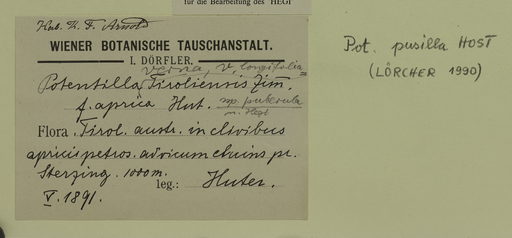 für die Bearbeitung des HEGI
Hub. F. Arnold
WIENER BOTANISCHE TAUSCHANSTALT.
I. DÖRFLER.
verna, v. longifolia
Potentilla Tiroliensis Zim.
f. aprica Hut. ssp. puberula
n. Hegi
Flora Tirol. austr. in clivibus
apricis petros. ad vicum Thuins pr.
Sterzing. 1000 m.
leg.: Huter.
V. 1891.
Pot. pusilla HOST
(LÖRCHER 1990)